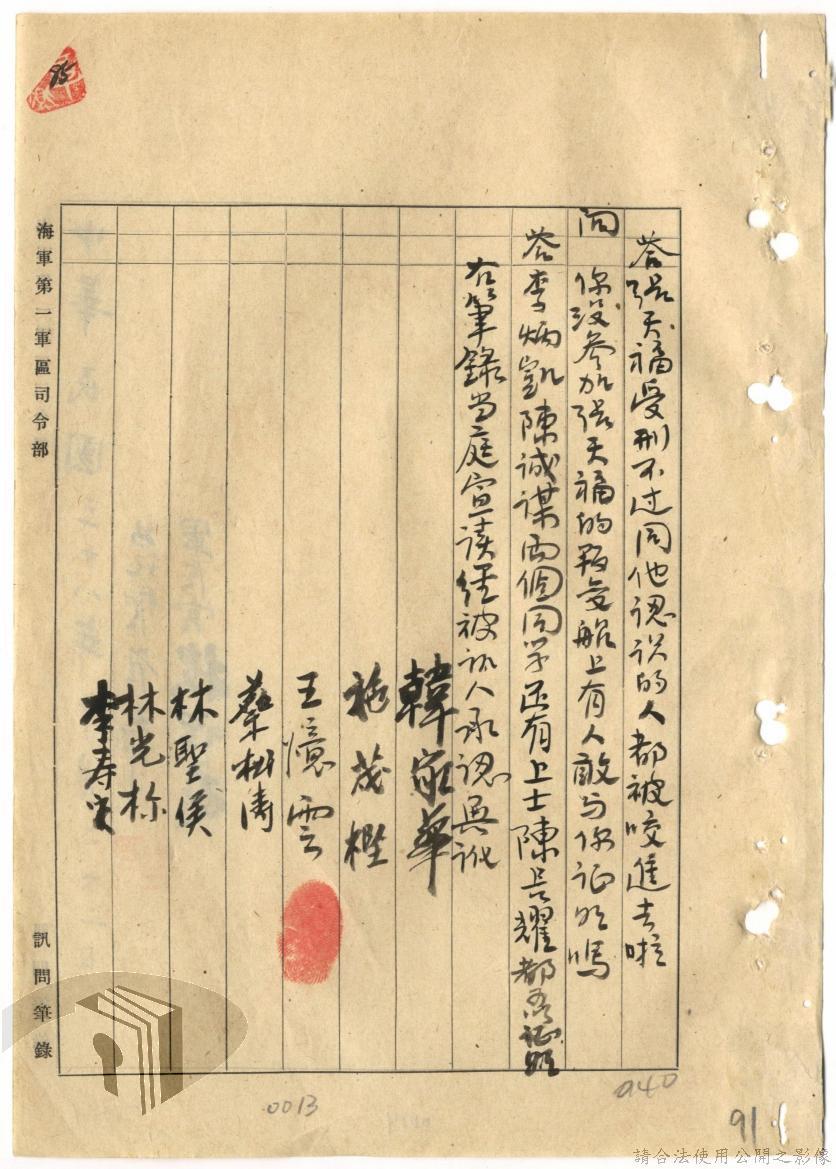 85
答 張天福受刑不过同他認识的人都被咬進去啦
问 你没参加張天福的叛变船上有人敢与你证明嗎
答 李炳凱陳誠谋両個同学还有上士陳长耀都為证明
右筆錄当庭宣读經被讯人承認無訛
韓家華
施茂樫
王憶雲
蔡樹濤
林聖侯
林光标
李寿
海軍第一軍區司令部
訊問筆錄
0013
040
91
請合法使用公開之影像